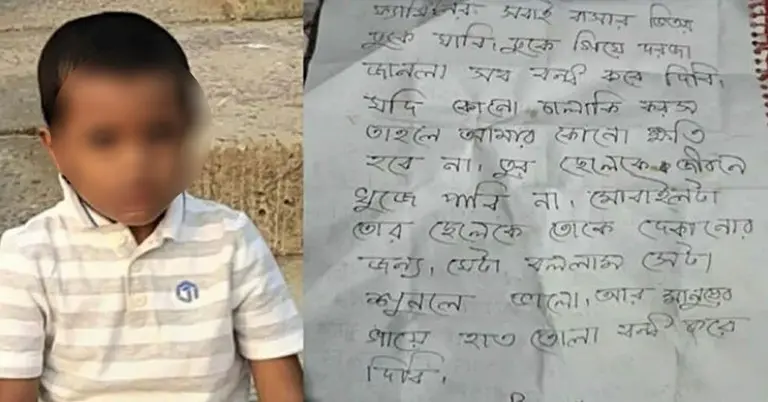 ফ্যামিলির সবাই বাসার ভিতর
ঢুকে যাবি, ঢুকে গিয়ে দরজা
জানলা সব বন্ধ করে দিবি,
যদি কোনো চালাকি করস
তাহলে আমার কোনো ক্ষতি
হবে না, তুর ছেলেকে জীবনে
খুজে পাবি না, মোবাইলটা
তোর ছেলেকে তোকে দেকানোর
জন্য, যেটা বললাম সেটা
শুনলে ভালো, আর মানুষের
গায়ে হাত তোলা বন্ধ করে
দিবি,